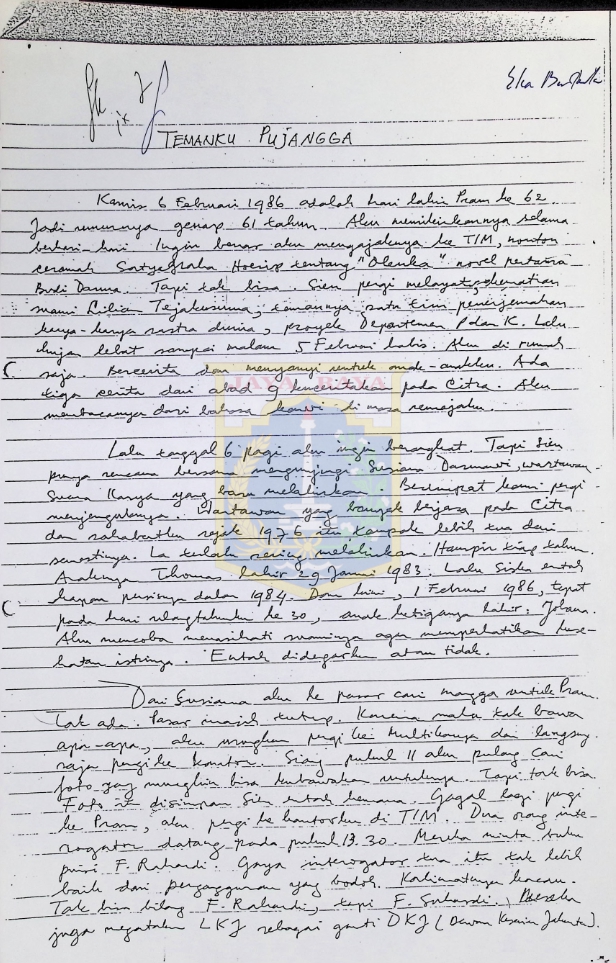 Eka Budianta
TEMANKU PUJANGGA
Kamis 6 Februari 1986 adalah hari lahir Pram ke 62.
Jadi umurnya genap 61 tahun. Aku memikirkannya selama
berhari-hari. Ingin benar aku mengajaknya ke TIM, nonton
ceramah Satyagraha Hoerip tentang "Olenka" novel pertama
Budi Darma. Tapi tak bisa. Sien pergi melayat kematian
mami Lilian Tejakusuma, temannya satu tim penerjemahan
karya-karya sastra dunia, proyek Departemen P dan K. Lalu
hujan lebat sampai malam 5 Februari habis. Aku di rumah
saja. Bercerita dan menyanyi untuk anak-anakku. Ada
tiga cerita dari abad 9 kuceritakan pada Citra. Aku
membacanya dari bahasa kawi di masa remajaku.
JAYA RAYA
Lalu tanggal 6 pagi aku ingin berangkat. Tapi Sien
punya rencana bersama mengunjungi Susiana Darmawi, wartawan
Suara Karya yang baru melahirkan. Berempat kami pergi
menjenguknya. Wartawan yang banyak berjasa pada Citra
dan sahabatku sejak 1976 itu tampak lebih tua dari
semestinya. Ia terlalu sering melahirkan. Hampir tiap tahun.
Anaknya Thomas lahir 29 Januari 1983. Lalu Siska entah
kapan persisnya dalam 1984. Dan kini, 1 Februari 1986, tepat
pada hari ulangtahunku ke 30, anak ketiganya lahir: Johana.
Aku mencoba menasihati suaminya agar memperhatikan kese-
hatan istrinya. Entah didegarkan atau tidak.
Dari Susiana aku ke pasar cari mangga untuk Pram.
Tak ada. Pasar masih tutup. Karena malu tak bawa
apa-apa, aku urungkan pergi ke Multikarya dan langsung
saja pergi ke kantor. Siang pukul 11 aku pulang cari
foto yang mungkin bisa kubawakan untuknya. Tapi tak bisa.
Foto itu disimpan Sien entah kemana. Gagal lagi pergi
ke Pram, aku pergi ke kantorku di TIM. Dua orang inte-
rogator datang pada pukul 13.30. Mereka minta buku
puisi F. Rahardi. Gaya interogator tua itu tak lebih
baik dari pengangguran yang bodoh. Kalimatnya kacau.
Tak bisa bilang F. Rahardi, tapi F. Suhardi. Mereka
juga megatakan LKJ sebagai ganti DKJ (Dewan Kesenian Jakarta).